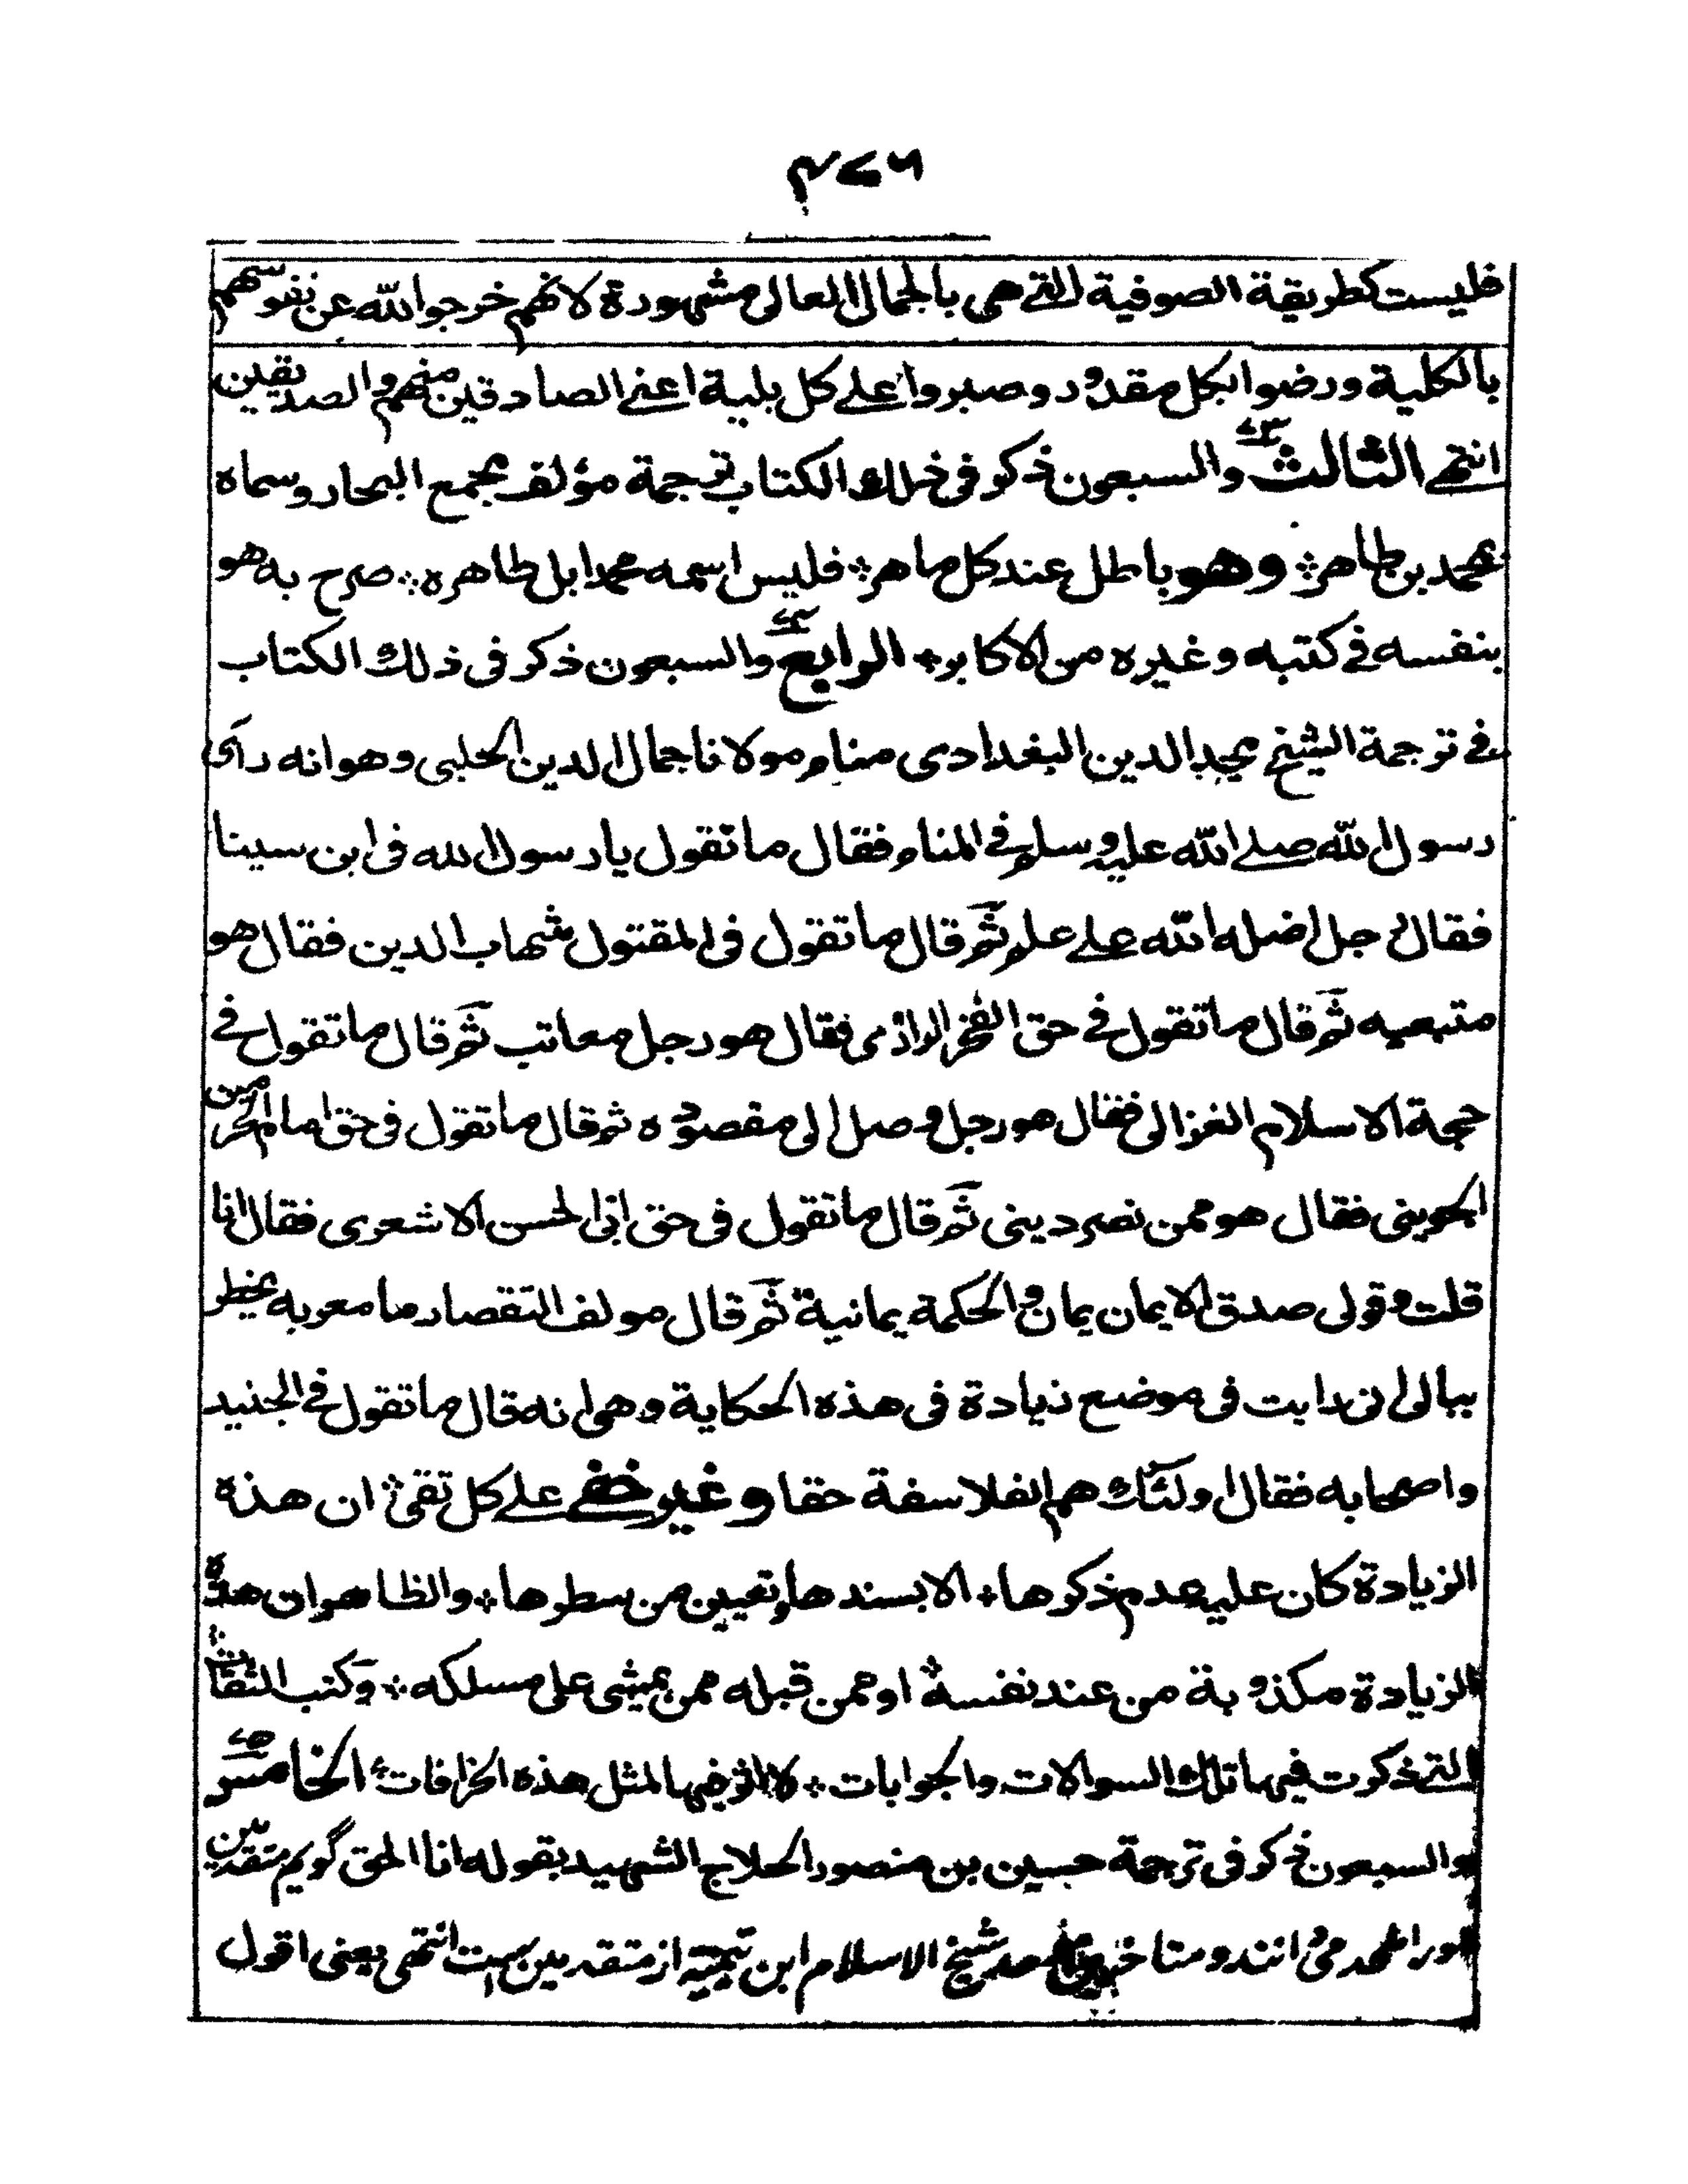 ٤٧٦
فليست كطريقة الصوفية التي هي بالجمال المعالى مشهودة لانهم خرجوا لله عن نفوسهم
بالكلية ورضوا بكل مقدور وصبروا على كل بلية اعنے الصادقين منهم والصديقين
انتهى الثالث والسبعون ذكر فى ذلك الكتاب ترجمة مؤلف مجمع البحار وسماه
محمد بن طاهر وهو باطل عند كل ماهر فليس اسمه محمدا بل طاهره صرح به هو
بنفسه في كتبه وغيره من الاكابر الرابع والسبعون ذكر فى ذلك الكتاب
في ترجمة الشيخ مجد الدين البغدادى منام مولانا جمال الدين الحلبى وهو انه رأى
رسول الله صلے الله عليه وسلم في المنام فقال ما تقول يا رسول الله فى ابن سينا
فقال رجل اضله الله على علم ثم قال ما تقول فى المقتول شهاب الدين فقال هو
متبعيه ثم قال ما تقول في حق الفخر الرازى فقال هو رجل معاتب ثم قال ما تقول في
حجة الاسلام الغزالى فقال هو رجل وصل الى مقصوده ثم قال ما تقول فى حق امام الحرمين
الجوينى فقال هو ممن نصر دينى ثم قال ما تقول فى حق ابى الحسن الاشعرى فقال انا
قلت وقولى صدق الايمان يمان والحكمة يمانية ثم قال مولف التقصار ما معربه يخطر
ببالى انى رايت فى موضع زيادة فى هذه الحكاية وهى انه قال ما تقول في الجنيد
واصحابه فقال اولئك هم الفلاسفة حقا وغير خفے على كل تقى ان هذه
الزيادة كان عليه عدم ذكرها الا بسندها وتعيين من سطرها والظاهر ان هذه
الزيادة مكذوبة من عند نفسه او ممن قبله ممن يمشى على مسلكه وكتب الثقات
التے ذكرت فيها تلك السوالات والجوابات لا اثر فيها لمثل هذه الخرافات الخامس
والسبعون ذكر فى ترجمة حسين بن منصور الحلاج الشهيد بقوله انا الحق گويم متقدمين
اورا ملحد مى دانند و شيخ الاسلام ابن تيميه از متقدمين ست انتهى يعنى اقول